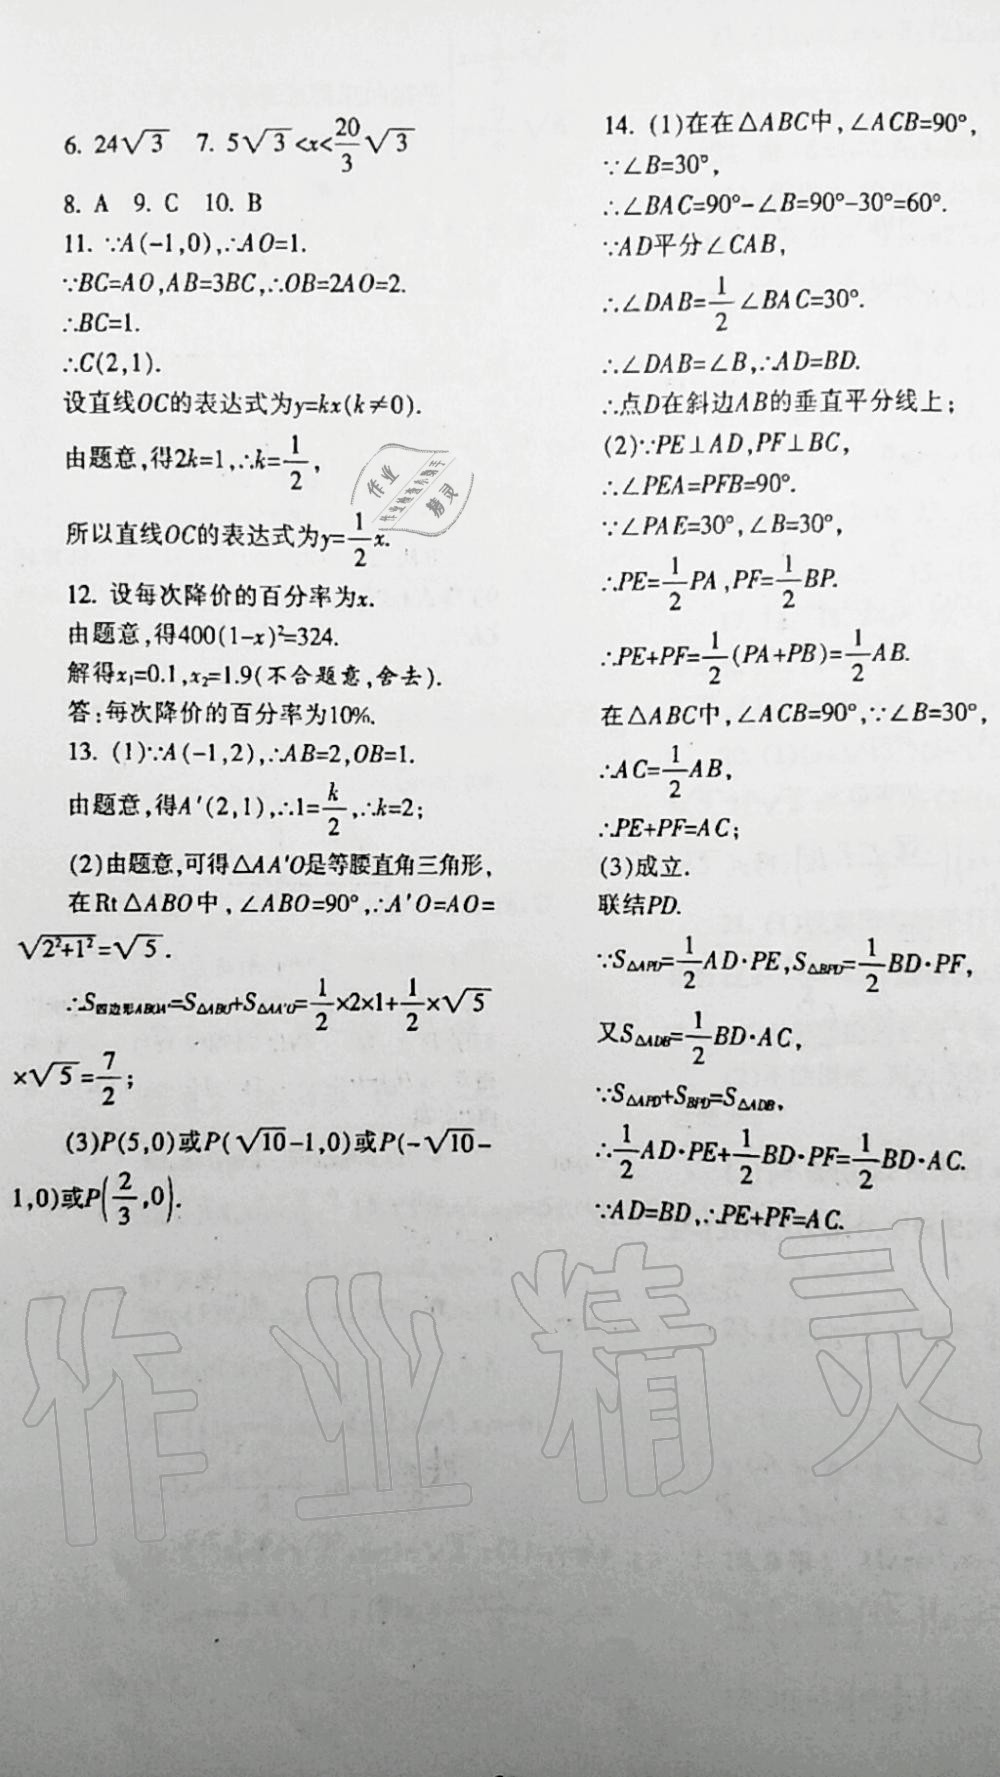 6. 24√3 7. 5√3<x<20/3√3
8. A 9. C 10. B
11. ∵A(-1,0),∴AO=1.
∵BC=AO,AB=3BC,∴OB=2AO=2.
∴BC=1.
∴C(2,1).
设直线OC的表达式为y=kx(k≠0).
由题意,得2k=1,∴k=1/2,
所以直线OC的表达式为y=1/2x.
12. 设每次降价的百分率为x.
由题意,得400(1-x)²=324.
解得x₁=0.1,x₂=1.9(不合题意,舍去).
答:每次降价的百分率为10%.
13. (1)∵A(-1,2),∴AB=2,OB=1.
由题意,得A′(2,1),∴1=k/2,∴k=2;
(2)由题意,可得△AA′O是等腰直角三角形,
在Rt△ABO中,∠ABO=90°,∴A′O=AO=
√(2²+1²)=√5.
∴S四边形ABOA′=S△ABO+S△AA′O=1/2×2×1+1/2×√5
×√5=7/2;
(3)P(5,0)或P(√10-1,0)或P(-√10-
1,0)或P(2/3,0).
14. (1)在在△ABC中,∠ACB=90°,
∵∠B=30°,
∴∠BAC=90°-∠B=90°-30°=60°.
∵AD平分∠CAB,
∴∠DAB=1/2∠BAC=30°.
∴∠DAB=∠B,∴AD=BD.
∴点D在斜边AB的垂直平分线上;
(2)∵PE⊥AD,PF⊥BC,
∴∠PEA=PFB=90°.
∵∠PAE=30°,∠B=30°,
∴PE=1/2PA,PF=1/2BP.
∴PE+PF=1/2(PA+PB)=1/2AB.
在△ABC中,∠ACB=90°,∵∠B=30°,
∴AC=1/2AB,
∴PE+PF=AC;
(3)成立.
联结PD.
∵S△APD=1/2AD·PE,S△BPD=1/2BD·PF,
又S△ADB=1/2BD·AC,
∵S△APD+SBPD=S△ADB,
∴1/2AD·PE+1/2BD·PF=1/2BD·AC.
∵AD=BD,∴PE+PF=AC.
作业
精灵
作业精灵